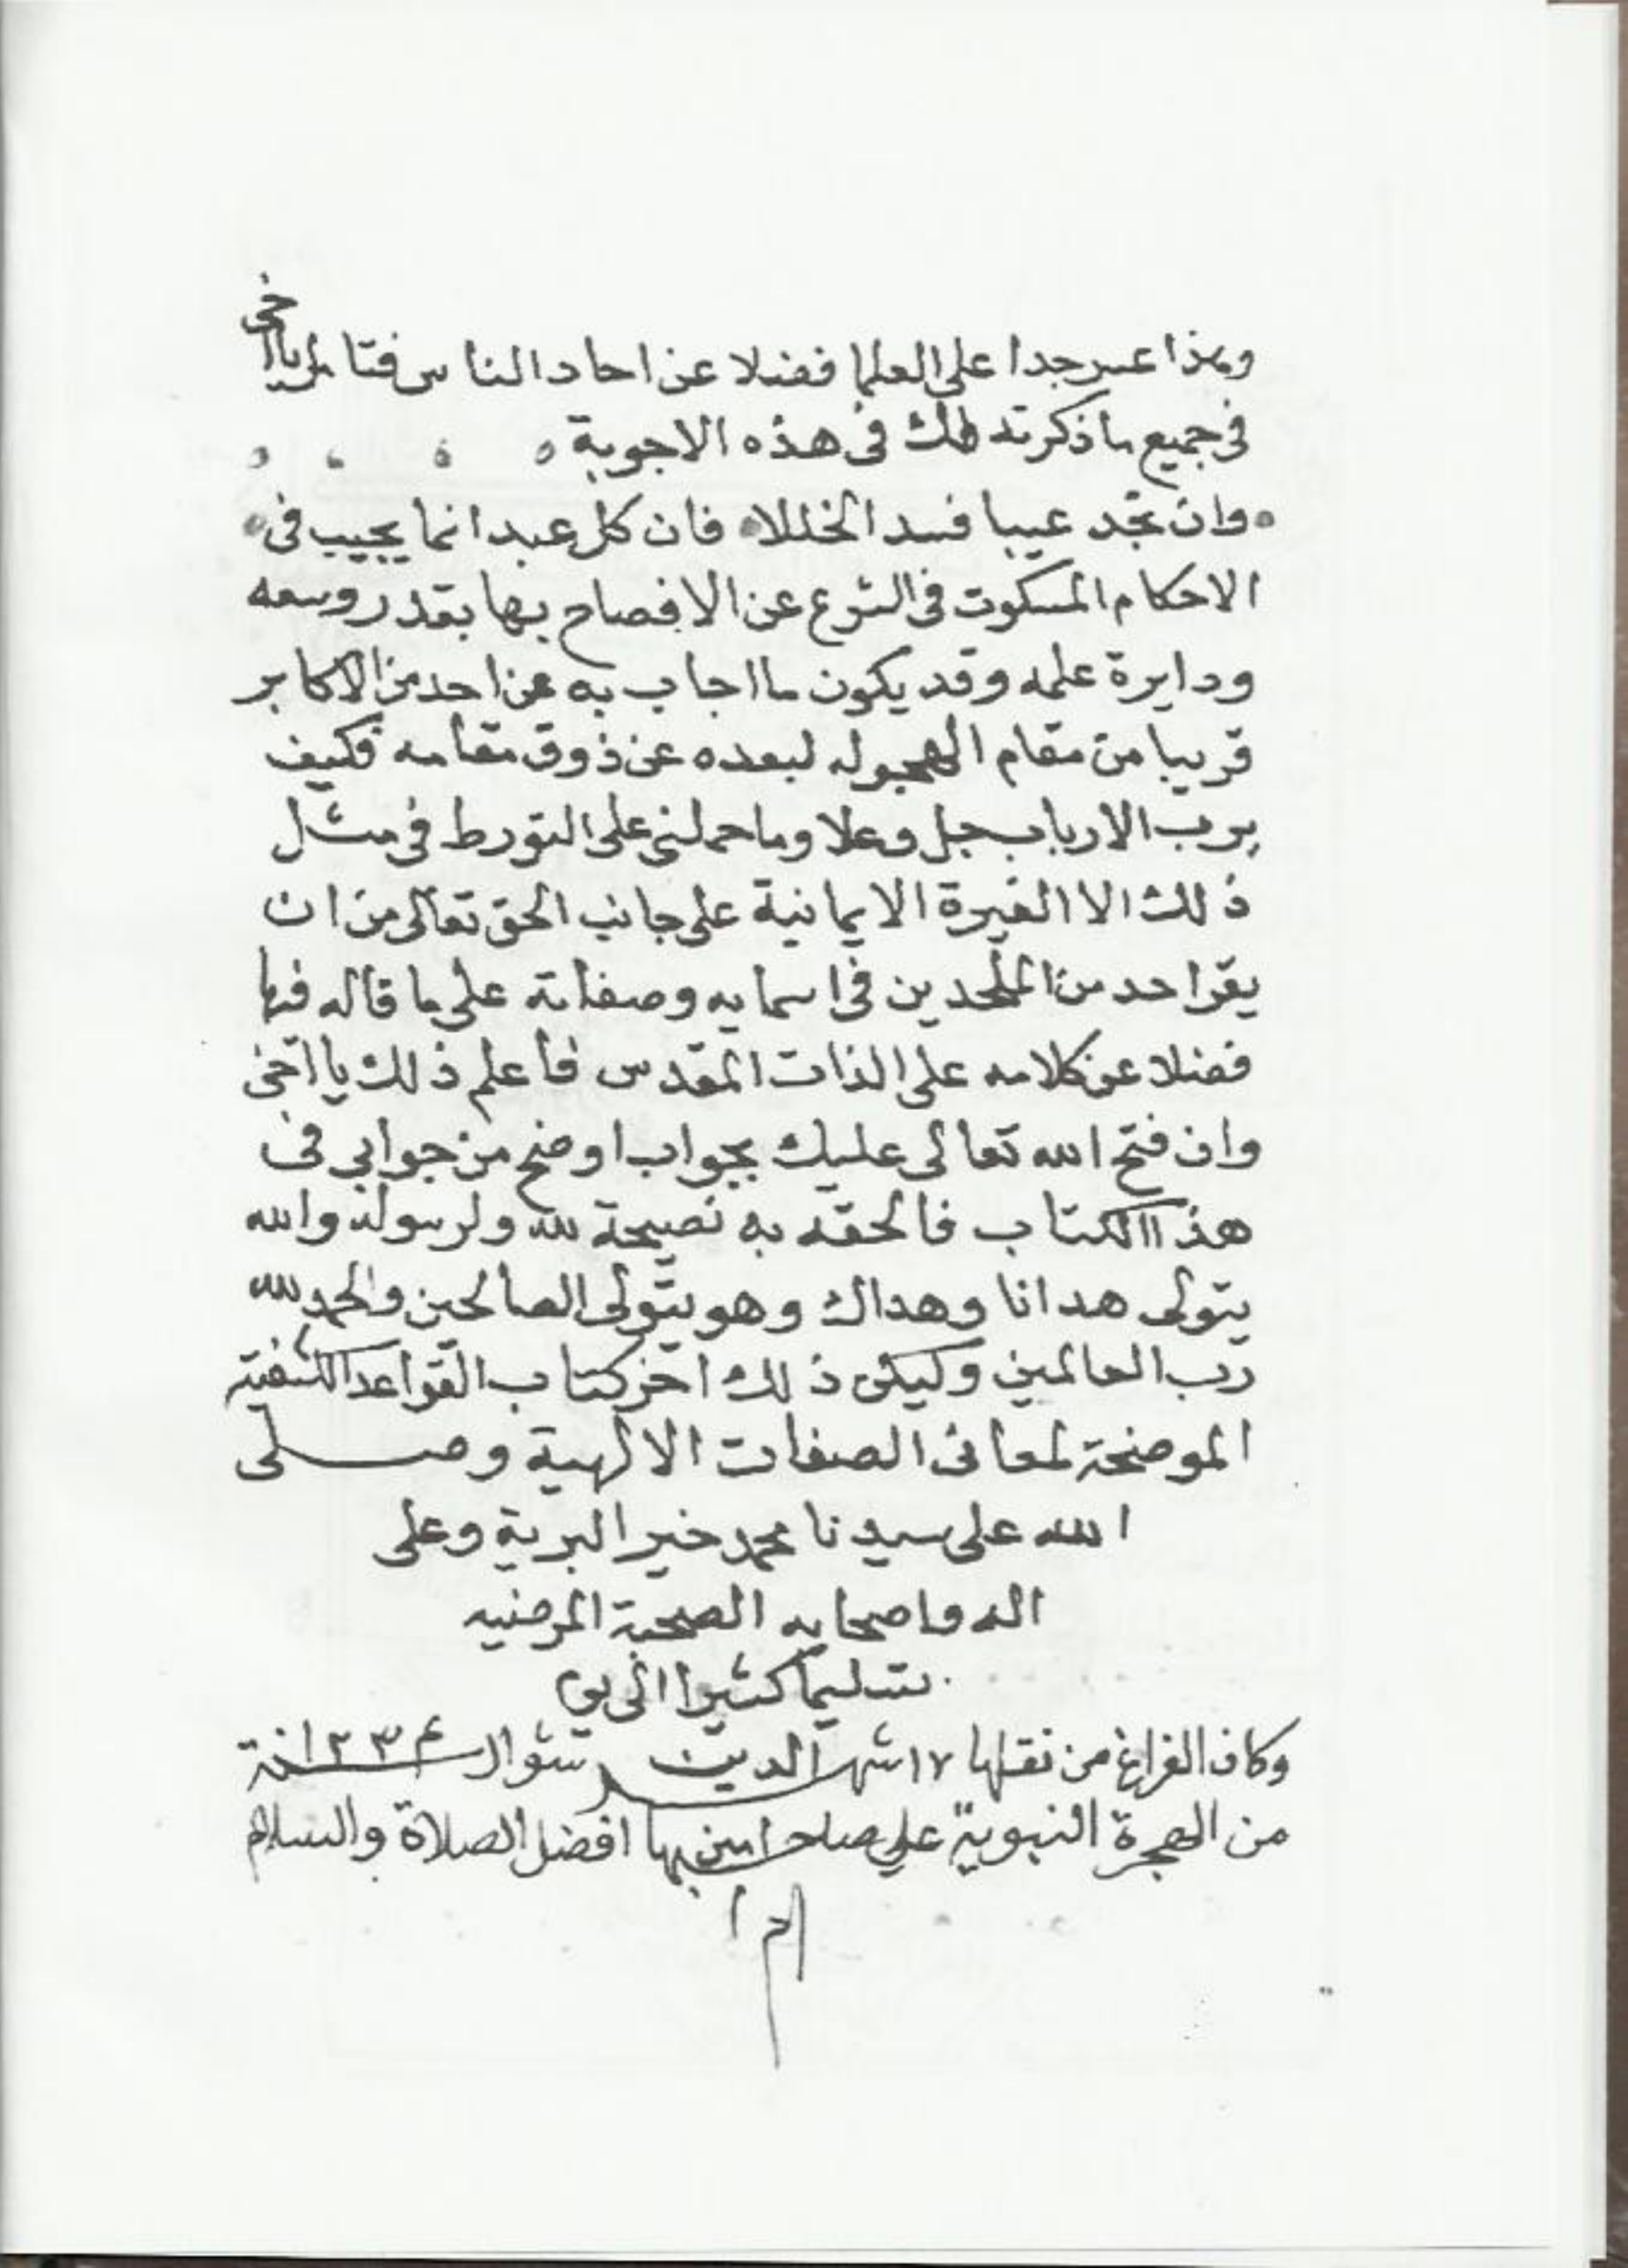 وهذا عسر جدا على العلما فضلا عن احاد الناس فتامل يا اخى
فى جميع ما ذكرته لك فى هذه الاجوبة
وان تجد عيبا فسد الخللا فان كل عبد انما يجيب فى
الاحكام المسكوت فى الشرع عن الافصاح بها بقدر وسعه
ودايرة علمه وقد يكون ما اجاب به عن احد من الاكابر
قريبا من مقام الهجو له لبعده عن ذوق مقامه فكيف
برب الارباب جل وعلا وما حملنى على التورط فى مثل
ذلك الا الغيرة الايمانية على جانب الحق تعالى من ان
يقر احد من الملحدين فى اسمايه وصفاته على ما قاله فيها
فضلا عن كلامه على الذات المقدس فاعلم ذلك يا اخى
وان فتح الله تعالى عليك بجواب اوضح من جوابى فى
هذا الكتاب فالحقه به نصيحة لله ولرسوله والله
يتولى هدانا وهداك وهو يتولى الصالحين والحمد لله
رب العالمين وليكن ذلك اخر كتاب القواعد الكشفية
الموضحة لمعانى الصفات الالهية وصلى
الله على سيدنا محمد خير البرية وعلى
اله واصحابه الصحبة المرضيه
تسليما كثيرا الى يوم
وكان الفراغ من نقلها ١٧ شهر الدين شوال ١٣٣٤ سنة
من الهجرة النبوية على صاحبها افضل الصلاة والسلام